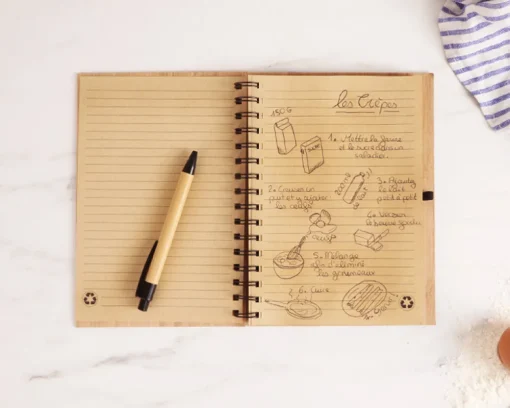 les Crêpes
150 G
1. Mettre la farine
et le sucre dans un
saladier.
2. Creuser un
puit et y ajouter
les oeufs
200 mL
de lait
3. Ajouter
le lait
petit à petit
4. Verser
le beurre fondu
oeufs
5. Mélanger
afin d'éliminer
les grumeaux
6. Cuire